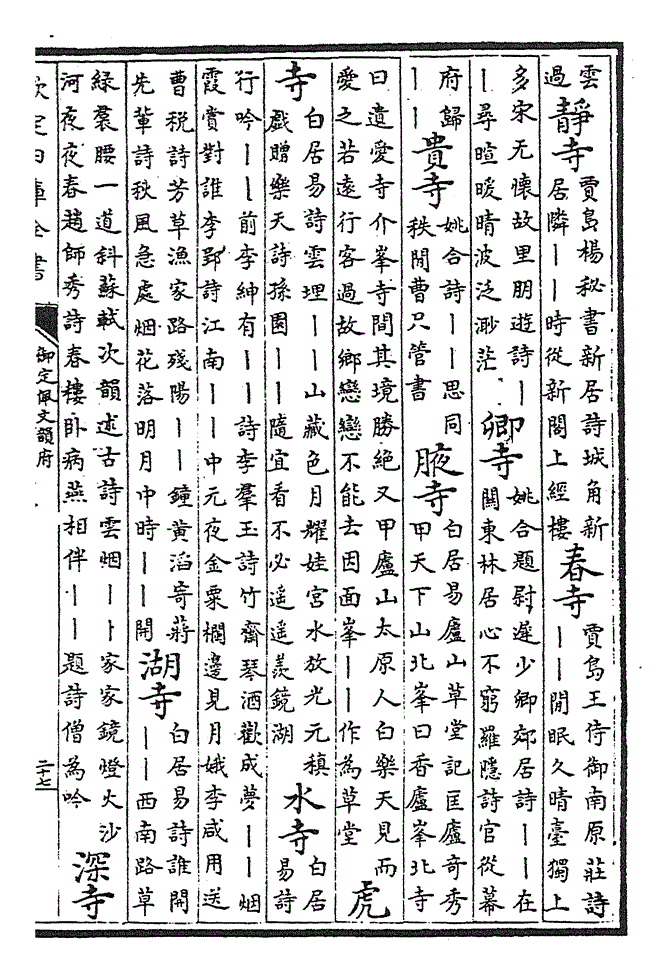 雲
過
靜寺
賈島楊秘書新居詩城角新
居隣丨丨時從新閣上經樓
春寺
賈島王侍御南原莊詩
丨丨閒眠久晴臺獨上
多宋无懷故里朋遊詩丨
丨尋暄暖晴波泛渺茫
卿寺
姚合題尉遲少卿郊居詩丨丨在
關東林居心不窮羅隱詩官從幕
府歸
丨丨
貴寺
姚合詩丨丨思同
秩閒曹只管書
腋寺
白居易廬山草堂記匡廬奇秀
甲天下山北峯曰香廬峯北寺
曰遺愛寺介峯寺間其境勝絕又甲廬山太原人白樂天見而
愛之若遠行客過故鄉戀戀不能去因面峯丨丨作為草堂
虎
寺
白居易詩雲埋丨丨山藏色月耀娃宮水放光元稹
戲贈樂天詩孫園丨丨隨宜看不必遥遥羨鏡湖
水寺
白居
易詩
行吟丨丨前李紳有丨丨詩李羣玉詩竹齋琴酒歡成夢丨丨烟
霞賞對誰李郢詩江南丨丨中元夜金粟欄邊見月娥李咸用送
曹税詩芳草漁家路殘陽丨丨鐘黃滔寄蔣
先輩詩秋風急處烟花落明月中時丨丨開
湖寺
白居易詩誰開
丨丨西南路草
綠裠腰一道斜蘇軾次韻述古詩雲烟丨丨家家鏡燈火沙
河夜夜春趙師秀詩春樓卧病燕相伴丨丨題詩僧為吟
深寺
欽定四庫全書
御定佩文韻府
二十七